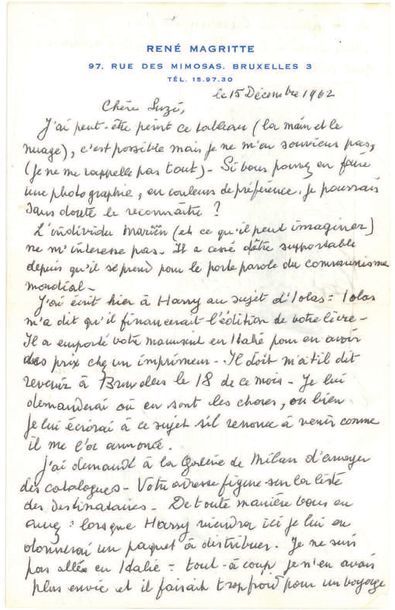 RENÉ MAGRITTE
97, RUE DES MIMOSAS. BRUXELLES 3
TÉL. 15.97.30
le 15 Décembre 1962
Chère Suzi,
J'ai peut-être peint ce tableau (la main et le
nuage), c'est possible mais je ne m'en souviens pas,
(je ne me rappelle pas tout) - Si vous pouvez en faire
une photographie, en couleurs de préférence, je pourrais
sans doute le reconnaître ?
L'individu Mariën (et ce qu'il peut imaginer)
ne m'intéresse pas - Il a cessé d'être supportable
depuis qu'il se prend pour le porte parole du communisme
mondial -
J'ai écrit hier à Harry au sujet d'Iolas : Iolas
m'a dit qu'il financerait l'édition de votre livre -
Il a emporté votre manuscrit en Italie pour en avoir
des prix chez un imprimeur - Il doit m'a t'il dit
revenir à Bruxelles le 18 de ce mois - Je lui
demanderai où en sont les choses, ou bien
je lui écrirai à ce sujet s'il renonce à venir comme
il me l'a annoncé.
J'ai demandé à la Galerie de Milan d'envoyer
des catalogues - Votre adresse figure sur la liste
des destinataires - De toute manière vous en
aurez : lorsque Harry viendra ici je lui en
donnerai un paquet à distribuer. Je ne suis
pas allé en Italie - tout à coup je n'en avais
plus envie et il faisait trop froid pour un voyage